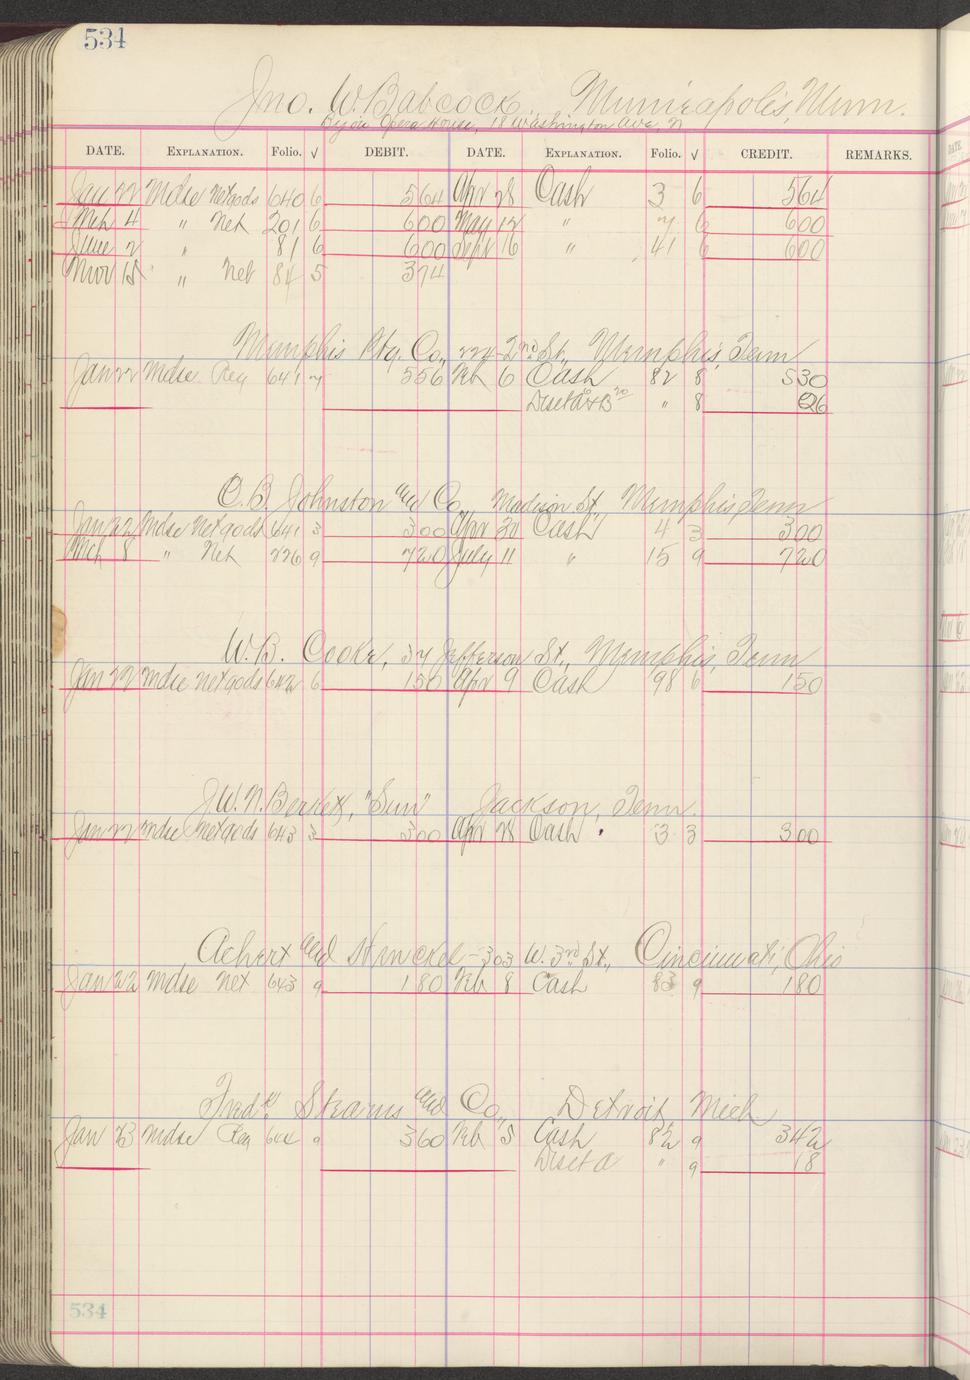 534
Jno. W. Babcock, Minneapolis, Minn.
Bijou Opera House, 18 Washington Ave, N
DATE. EXPLANATION. Folio. √ DEBIT. DATE. EXPLANATION. Folio. √ CREDIT. REMARKS.
Jan 22 Mdse Net gods 640 6 564 Apr 28 Cash 3 6 564
Mch 4 " Net 201 6 600 May 12 " 7 6 600
June 2 " 81 6 600 Sept 16 " 41 6 600
Nov 15 " Net 84 5 374
Memphis Ptg. Co., 224-2nd St., Memphis, Tenn
Jan 22 Mdse Reg 641 7 556 Feb 6 Cash 82 8 530
Disct " 8 26
C. B. Johnston and Co, Madison St., Memphis Tenn
Jan 22 Mdse Net gods 641 3 300 Apr 30 Cash 4 3 300
Mch 8 " Net 226 9 720 July 11 " 15 9 720
W. B. Cooke, 37 Jefferson St., Memphis, Tenn
Jan 22 Mdse Net gods 642 6 150 Apr 9 Cash 98 6 150
J W. N. "Sun" Jackson, Tenn.
Jan 22 Mdse Net gods 643 3 300 Apr 28 Cash 3 3 300
Achert and Henckel - 303 W. 3rd St., Cincinnati, Ohio
Jan 22 Mdse Net 643 9 180 Feb 8 Cash 83 9 180
Fredk Stearns and Co., Detroit, Mich
Jan 23 Mdse Reg 644 9 360 Feb 5 Cash 82 9 342
Disct a " 9 18
534